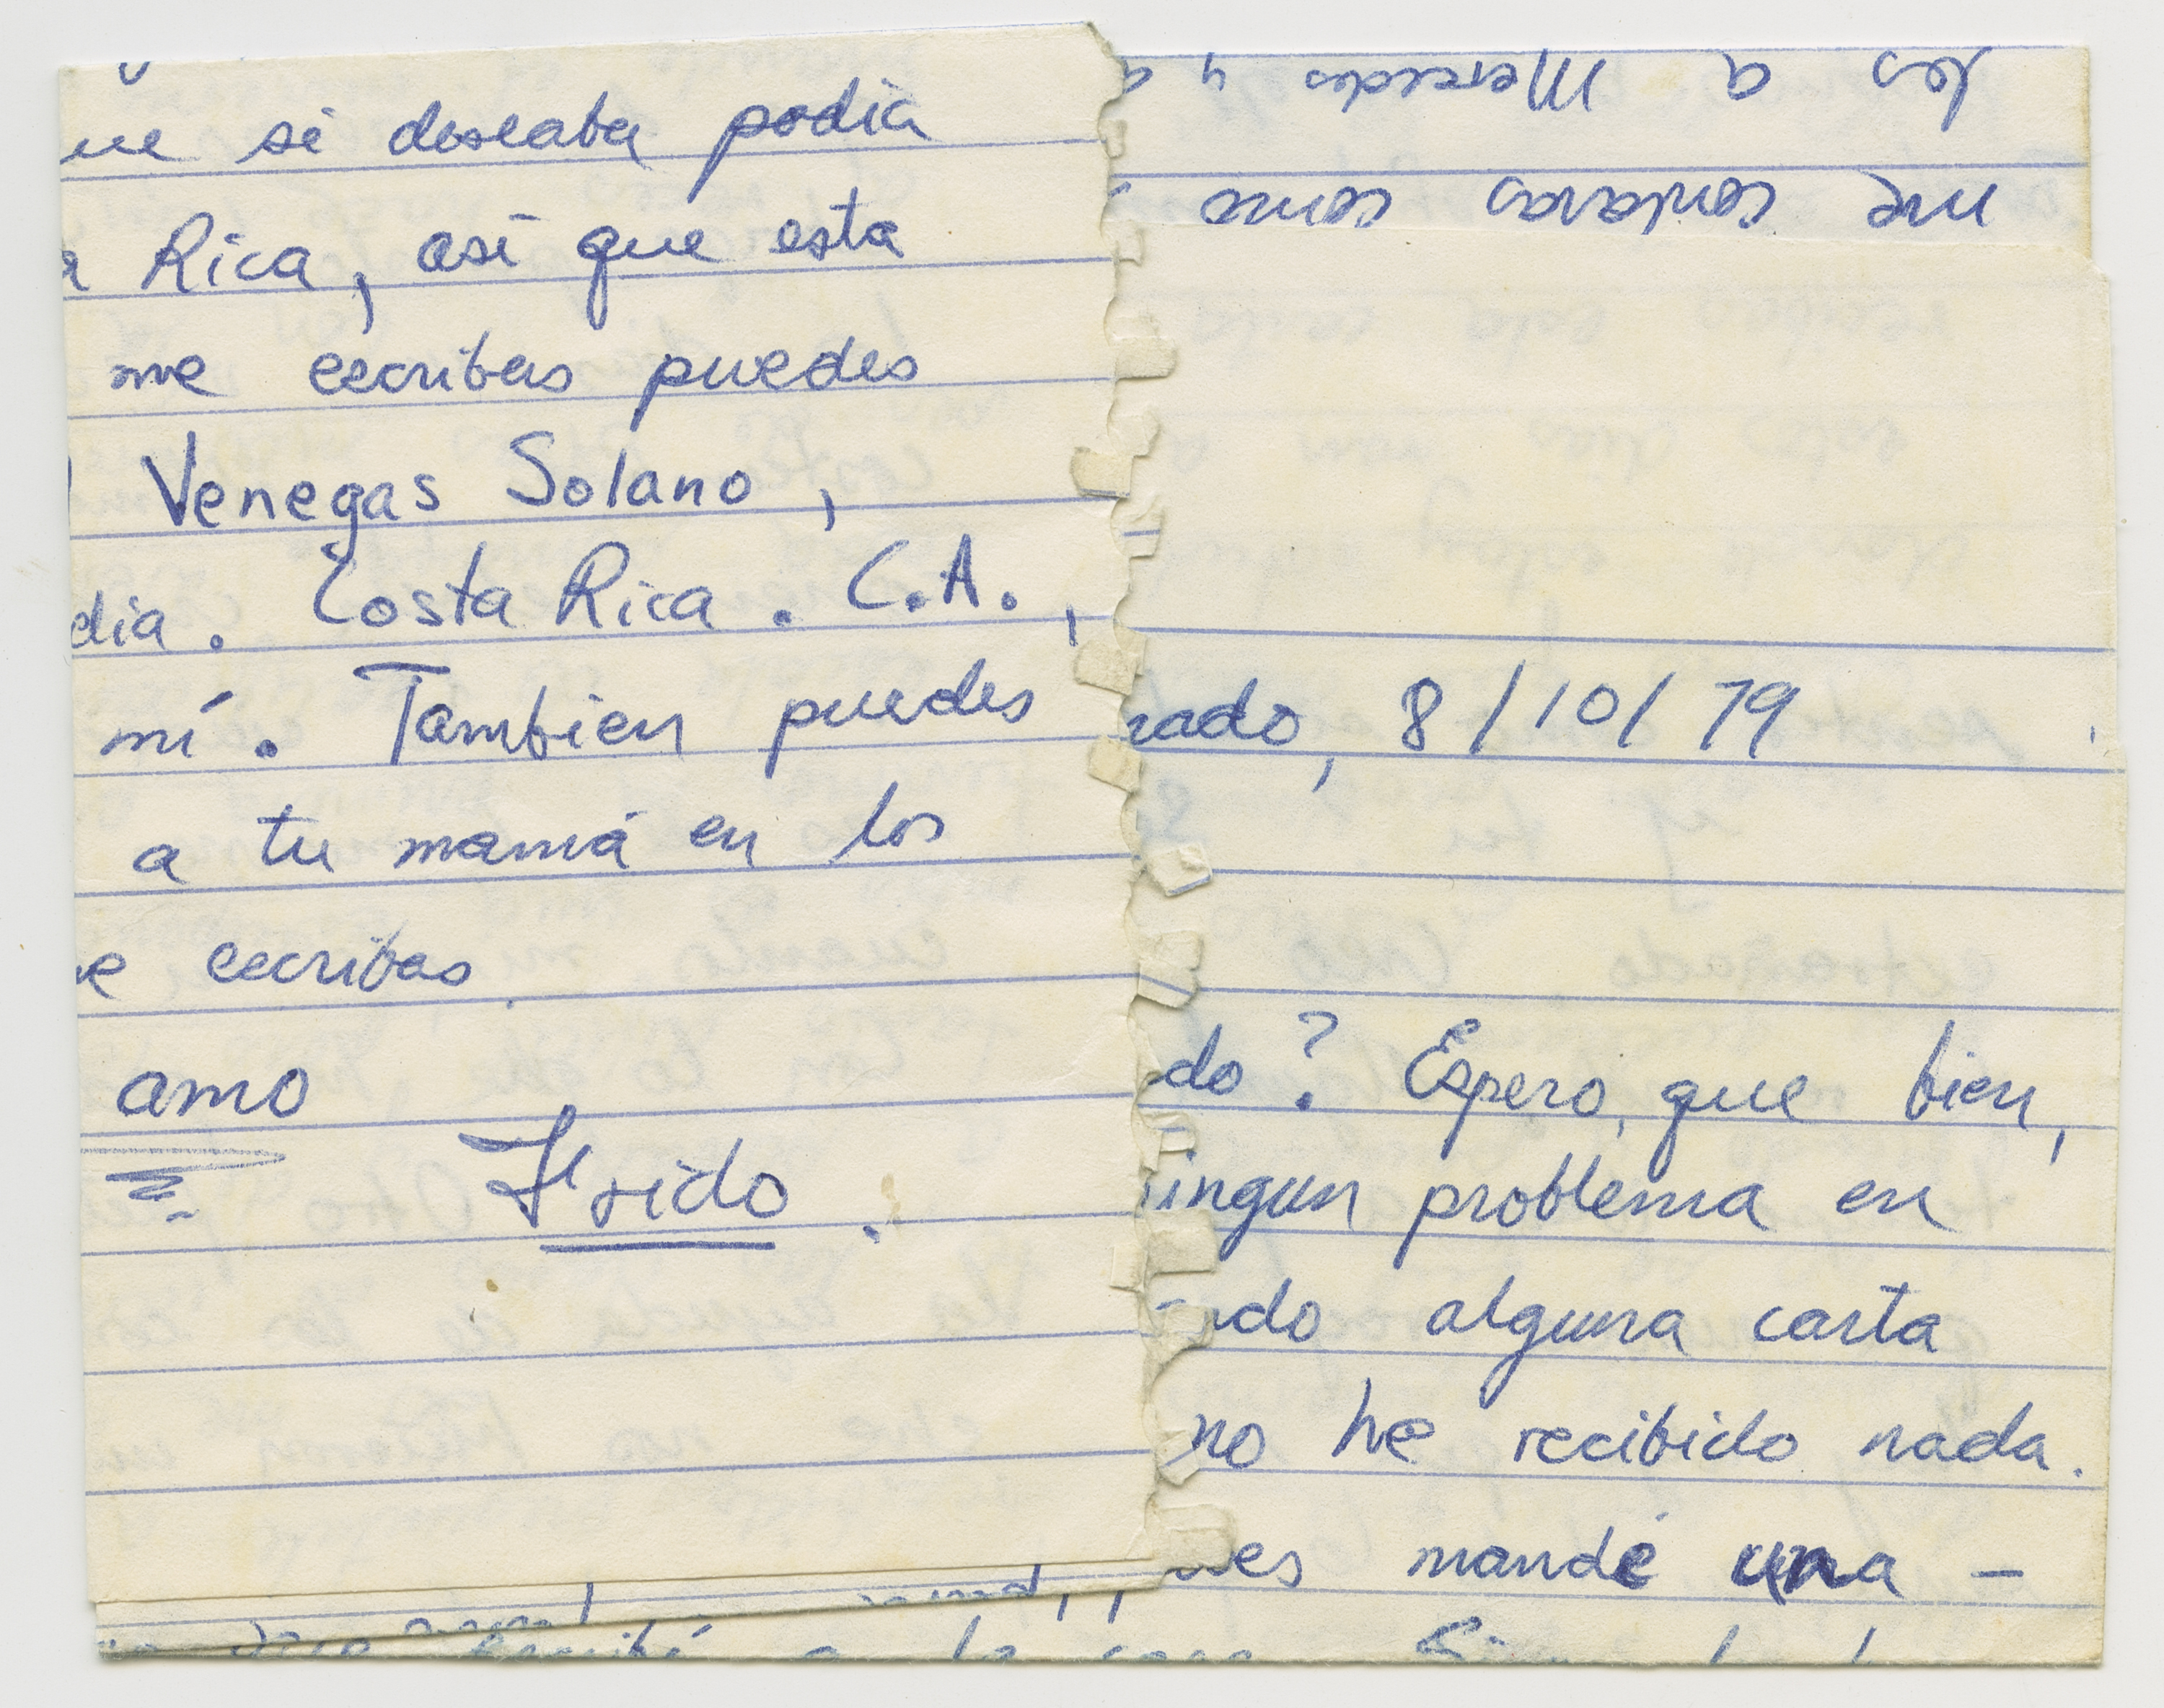 si deseaba podia
Rica, asi que esta
me escribas puedes
Venegas Solano,
dia. Costa Rica. C.A.,
mí. Tambien puedes
a tu mamá en los
escribas
amo
Frido.
les a Mercedes y
me contaras como
rado, 8/10/79
do? Espero, que bien,
ingun problema en
do alguna carta
no he recibido nada.
es mandé una –
a la